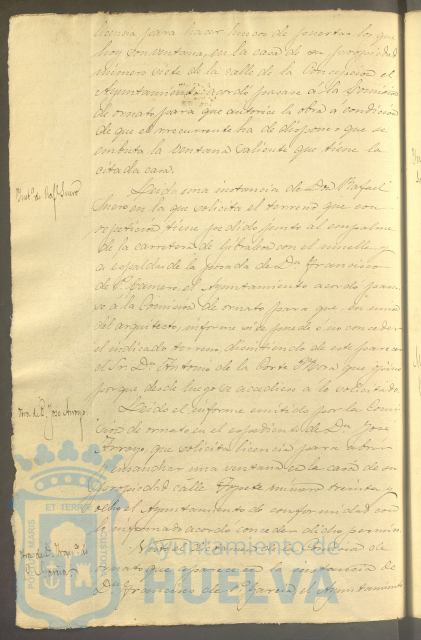 licencia para hacer huecos de puertas los que
hoy son ventanas, en la casa de su propiedad
número siete de la calle de la Concepcion el
Ayuntamiento acordó pasase á la Comision
de ornato para que autorice la obra á condicion
de que el recurrente ha de disponer que se
embuta la ventana saliente que tiene la
citada casa.
Leida una instancia de Dn Rafael
Suero en la que solicita el terreno que con
repeticion tiene pedido junto al empalme
de la carretera de Gibraleon con el muelle y
a espaldas de la posada de Dn Francisco
de P. el Ayuntamiento acordó pasar
se á la Comision de ornato para que en union
del arquitecto, informe si se puede ó no conceder
el indicado terreno, disintiendo de este parecer
el Sr. Dn Antonio de la Corte Mora que opinó
porque desde luego se accediera á lo solicitado.
Leido el informe emitido por la Comi
sion de ornato en el espediente de Dn José
Arroyo que solicita licencia para abrir
y ensanchar una ventana en la casa de su
propiedad calle Puerto número treinta y
ocho el Ayuntamiento de conformidad con
lo informado acordó conceder dicho permiso.
ornato que aparece en la instancia de
Dn Francisco de P. Garcia el Ayuntamiento
Inst.ª de Raf.l Suero
Otra de D. José Arroyo
Otra de D. Fran.co de
P. Garcia
PORTUS MARIS
ET TERRAE
CUSTODIA
Ayuntamiento de
HUELVA